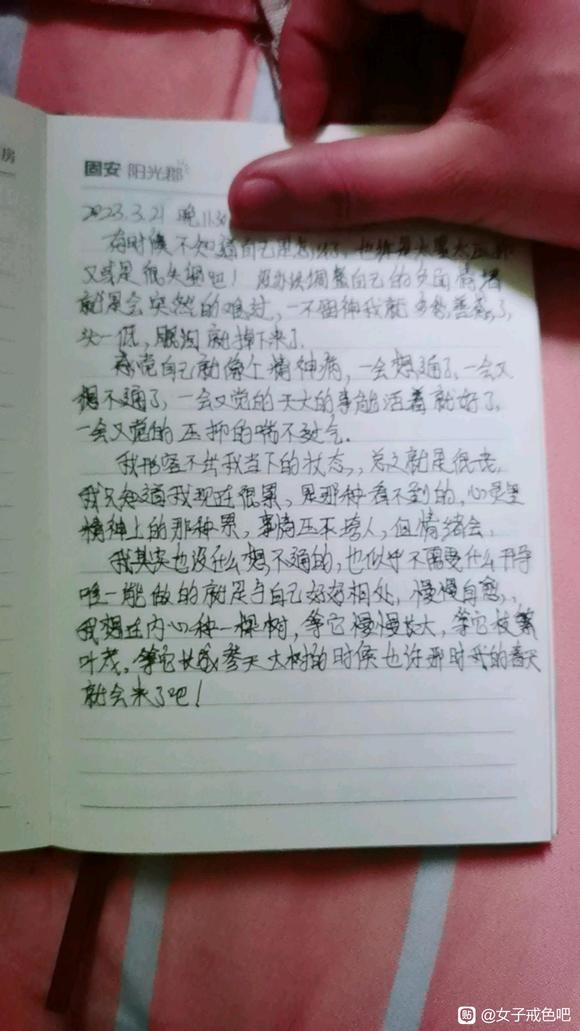 房
固安 阳光郡
2023.3.21 晚11:30
有时候不知道自己是怎么了，也许是太累太压抑
又或是很失望吧！没办法调整自己的负面情绪
就是会突然的难过，一不留神我就多愁善感了，
头一低，眼泪就掉下来了.
感觉自己就像个精神病，一会想通了、一会又
想不通了，一会又觉的天大的事能活着就好了，
一会又觉的压抑的喘不过气.
我形容不出我当下的状态，总之就是很
我只知道我现在很累，是那种看不到的，心灵里
精神上的那种累，事情压不垮人，但情绪会，
我其实也没什么想不通的，也似乎不需要什么开导
唯一能做的就是与自己好好相处，慢慢自愈，
我想在内心种一棵树，等它慢慢长大，等它枝繁
叶茂。等它长成参天大树的时候也许那时我的春天
就会来了吧！
贴 @女子戒色吧